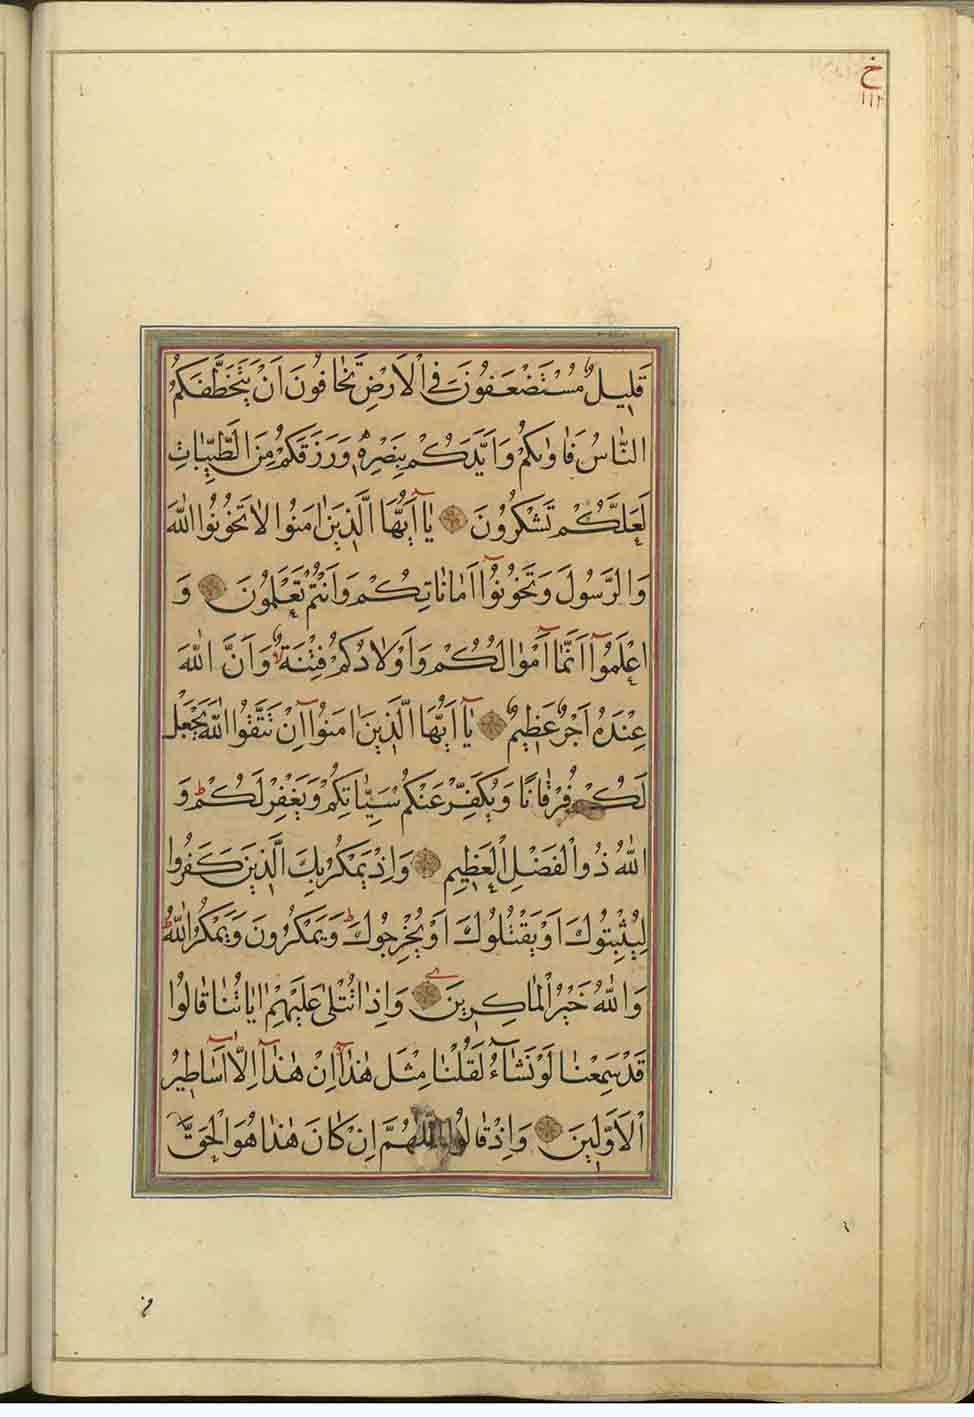 خ
١١٢
قَلِيلٌ مُسْتَضْعَفُونَ فِي الْاَرْضِ تَخَافُونَ اَنْ يَتَخَطَّفَكُمُ
النَّاسُ فَاٰوٰىكُمْ وَاَيَّدَكُمْ بِنَصْرِهٖ وَرَزَقَكُمْ مِنَ الطَّيِّبَاتِ
لَعَلَّكُمْ تَشْكُرُونَ يَٓا اَيُّهَا الَّذِينَ اٰمَنُوا لَا تَخُونُوا اللّٰهَ
وَالرَّسُولَ وَتَخُونُٓوا اَمَانَاتِكُمْ وَاَنْتُمْ تَعْلَمُونَ وَ
اعْلَمُٓوا اَنَّمَٓا اَمْوَالُكُمْ وَاَوْلَادُكُمْ فِتْنَةٌ وَاَنَّ اللّٰهَ
عِنْدَهُ اَجْرٌ عَظِيمٌ يَٓا اَيُّهَا الَّذِينَ اٰمَنُٓوا اِنْ تَتَّقُوا اللّٰهَ يَجْعَلْ
لَكُمْ فُرْقَانًا وَيُكَفِّرْ عَنْكُمْ سَيِّاٰتِكُمْ وَيَغْفِرْ لَكُمْ ط وَ
اللّٰهُ ذُو الْفَضْلِ الْعَظِيمِ وَاِذْ يَمْكُرُ بِكَ الَّذِينَ كَفَرُوا
لِيُثْبِتُوكَ اَوْ يَقْتُلُوكَ اَوْ يُخْرِجُوكَ ط وَيَمْكُرُونَ وَيَمْكُرُ اللّٰهُ ط
وَاللّٰهُ خَيْرُ الْمَاكِرِينَ وَاِذَا تُتْلٰى عَلَيْهِمْ اٰيَاتُنَا قَالُوا
قَدْ سَمِعْنَا لَوْ نَشَٓاءُ لَقُلْنَا مِثْلَ هٰذَٓا اِنْ هٰذَٓا اِلَّٓا اَسَاطِيرُ
الْاَوَّلِينَ وَاِذْ قَالُوا اللّٰهُمَّ اِنْ كَانَ هٰذَا هُوَ الْحَقَّ